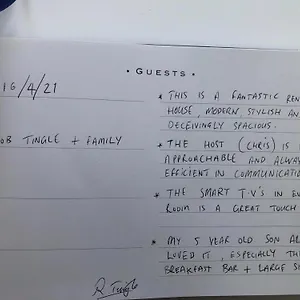 • GUESTS •
16/4/21
* THIS IS A FANTASTIC
HOUSE, MODERN, STYLISH AN
DECEIVINGLY SPACIOUS.
OB TINGLE + FAMILY
* THE HOST (CHRIS) IS
APPROACHABLE AND ALWA
EFFICIENT IN COMMUNICATIO
* THE SMART T.V'S IN EV
ROOM IS A GREAT TOUCH
* MY 5 YEAR OLD SON
LOVED IT, ESPECIALLY TH
BREAKFAST BAR + LARGE
R Tingle